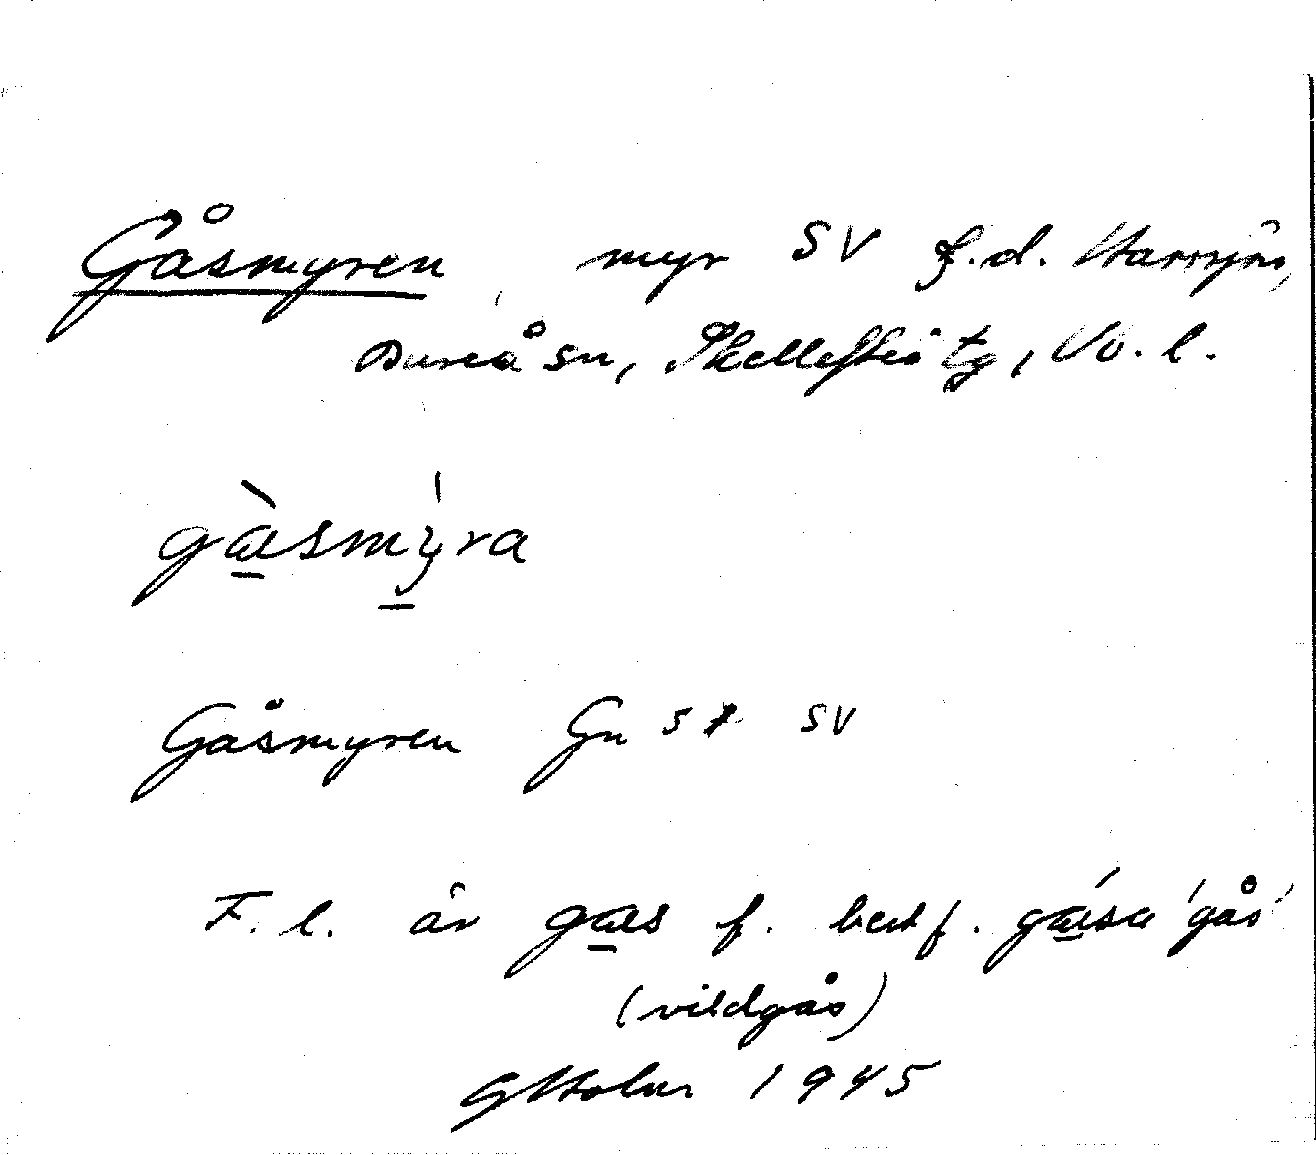 Gåsmyren myr SV f.d. Harrsjön,
Bureå sn, Skellefteå tg, Vb. l.
gàsmýra
Gåsmyren Gn SV
F. l. är gas f. best f. gása 'gås'
(vildgås)
GHolm 1945